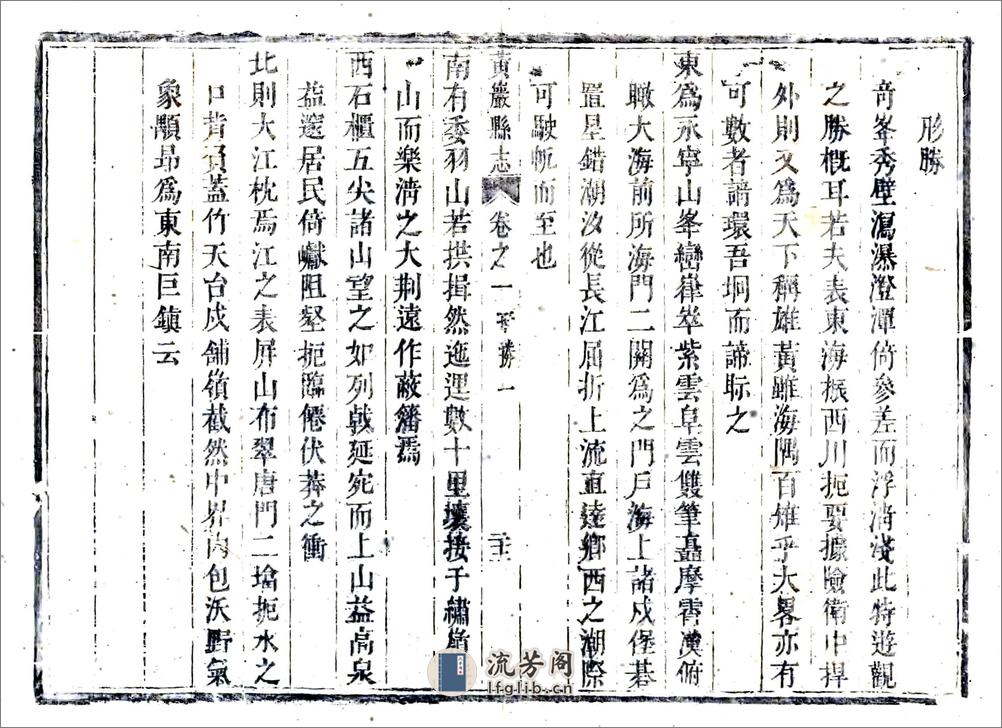 形勝
奇峯秀壁瀉瀑澄潭倚參差而浮淪淺此特遊觀
之勝概耳若夫表東海振西川扼要據險衛中捍
外則又爲天下稱雄黃雖海隅百雉乎大畧亦有
可數者請環吾坰而諦眎之
東爲永寧山峯巒嵂崒紫雲阜雲雙筆矗摩霄漢俯
瞰大海前所海門二關爲之門戶海上諸戍堡碁
置星錯潮汐從長江屈折上流直達鄉西之潮際
可駛帆而至也
黃巖縣志
卷之一
形勝一
二十三
南有委羽山若拱揖然迤邐數十里壤接于繡嶺
山而樂清之大荆遠作蔽籓焉
西石櫃五尖諸山望之如列戟延宛而上山益高泉
益邃居民倚巘阻壑扼臨僊伏莽之衝
北則大江枕焉江之表屏山布翠唐門二墖扼水之
口背負蓋竹天台戍舖嶺截然中界內包沃野氣
象顒昂爲東南巨鎮云
流芳阁
lfglib.cn